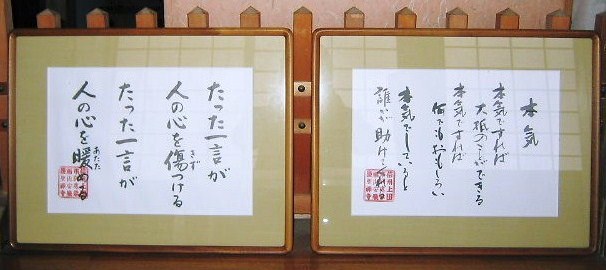 たった一言が
人の心を傷つける
きず
たった一言が
人の心を暖める
あたた
本気
本気ですれば
大抵のことができる
本気ですれば
何でもおもしろい
本気でしていると
誰かが助けてくれる
信州上田